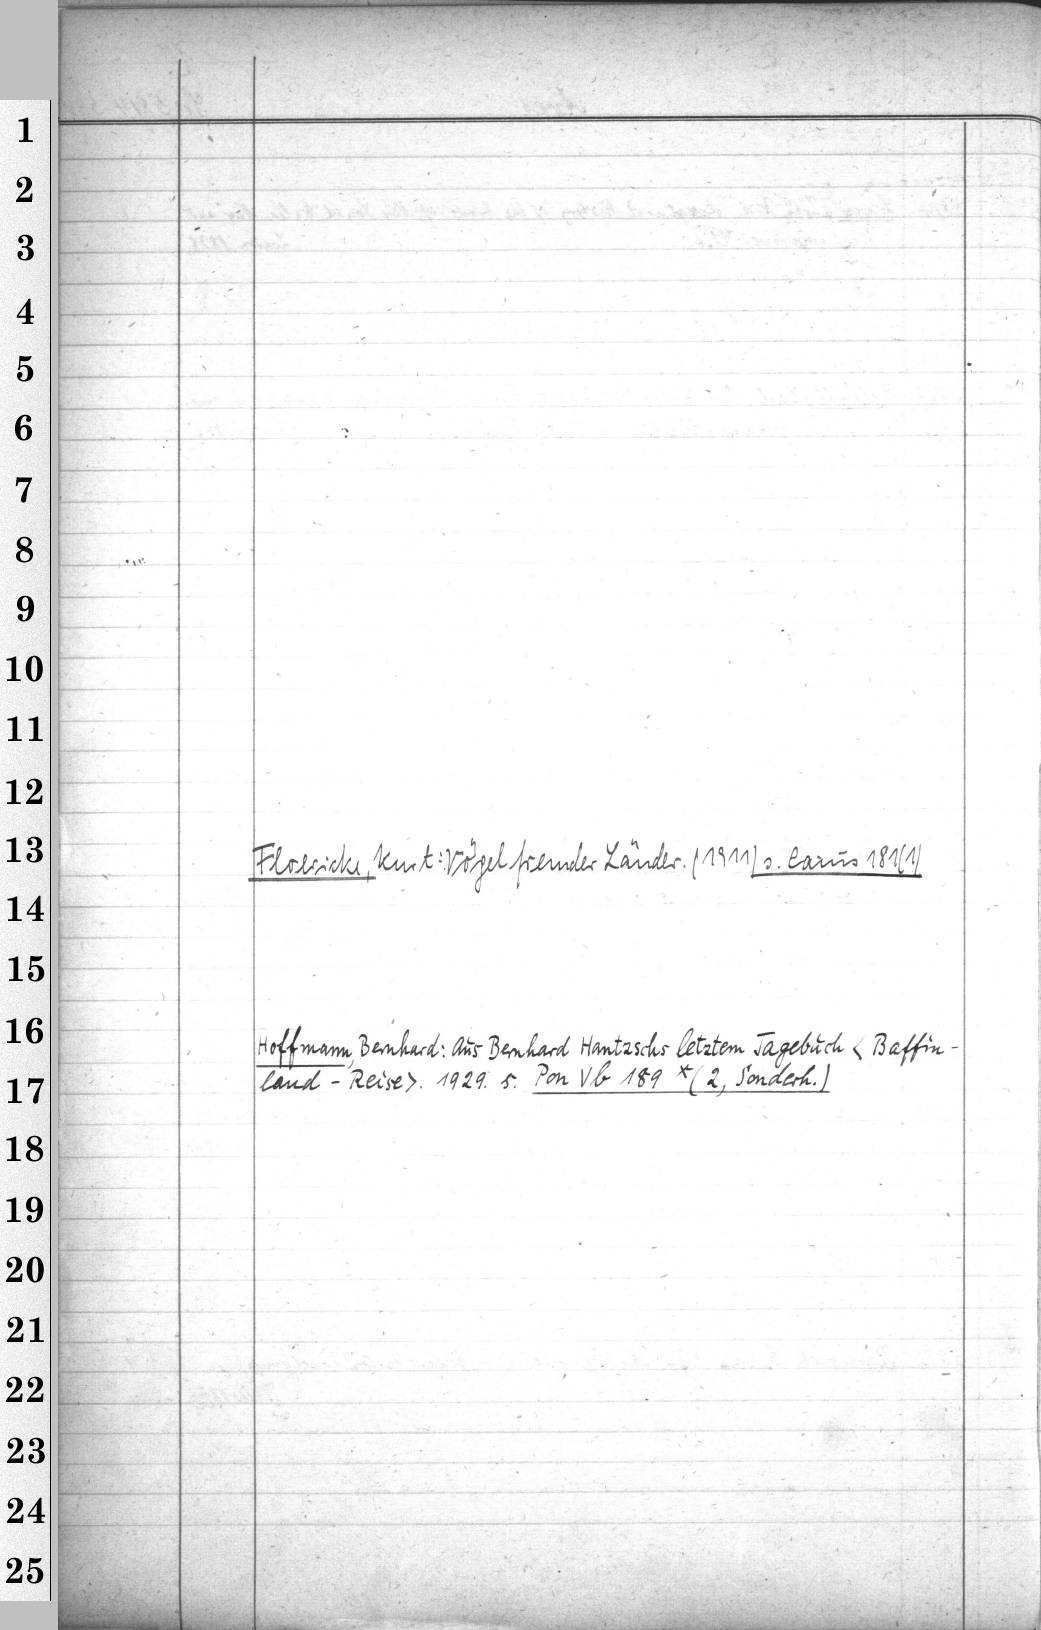 1
2
3
4
5
6
7
8
9
10
11
12
13
Floericke, Kurt: Vögel fremder Länder. (1911) s. Carus 181(1)
14
15
16
Hoffmann, Bernhard: Aus Bernhard Hantzschs letztem Tagebuch < Baffin-
land - Reise>. 1929. s. Pon Vb 189 * (2, Sonderh.)
17
18
19
20
21
22
23
24
25